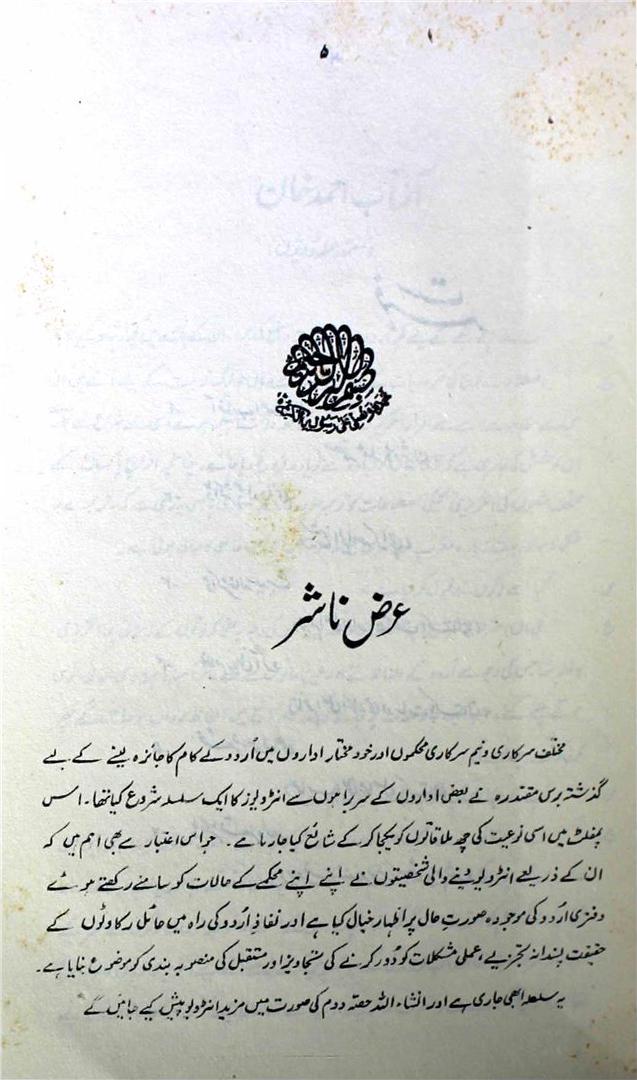 ۵
عرض ناشر
مختلف سرکاری و نیم سرکاری محکموں اور خود مختار اداروں میں اُردو کے کام کا جائزہ لینے کے لیے
گذشتہ برس مقتدرہ نے بعض اداروں کے سربراہوں سے انٹرویوز کا ایک سلسلہ شروع کیا تھا۔ اس
پمفلٹ میں اسی نوعیت کی چھ ملاقاتوں کو یکجا کر کے شائع کیا جا رہا ہے۔ جو اس اعتبار سے بھی اہم ہیں کہ
ان کے ذریعے انٹرویو دینے والی شخصیتوں نے اپنے اپنے محکمے کے حالات کو سامنے رکھتے ہوئے
دفتری اُردو کی موجودہ صورتِ حال پر اظہارِ خیال کیا ہے اور نفاذِ اُردو کی راہ میں حائل رکاوٹوں کے
حقیقت پسندانہ تجزیے، عملی مشکلات کو دُور کرنے کی تجاویز اور مستقبل کی منصوبہ بندی کو موضوع بنایا ہے۔
یہ سلسلہ ابھی جاری ہے اور انشاء اللہ حصّہ دوم کی صورت میں مزید انٹرویو پیش کیے جائیں گے